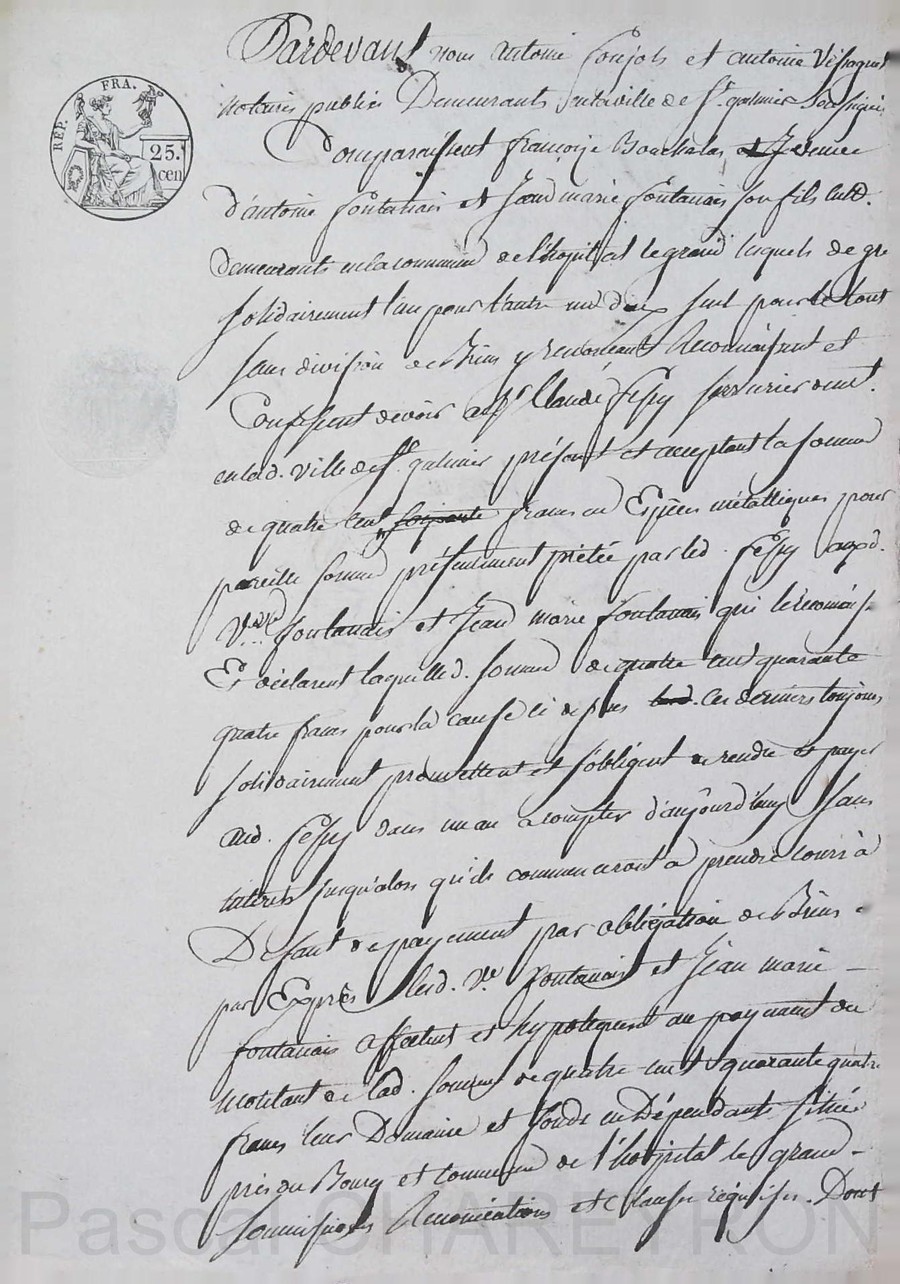 REP. FRA.
25. cen
Pardevant nous antoine et antoine
notaires publics Demeurants en la ville de St. galmier soussignés
Comparaissent françoise
d'antoine fontanais et Jean marie fontanais son fils
Demeurants en la commune de l'hopital le grand lesquels de gre
solidairement l'un pour l'autre un deux seul pour le tout
sans division de Biens y renonceant Reconnaissent et
Confessent devoir a Sr. Claude fessy serrurier demt.
en lad. ville de St. galmier présent et acceptant la somme
de quatre cent francs en Espèces métalliques pour
pareille somme présentement prêtée par led. fessy auxd.
Ve. fontanais et Jean marie fontanais qui le reconnaiss.
Et déclarent laquelle d. somme de quatre cent quarante
quatre francs pour la cause ci dessus ces derniers toujours
solidairement promettent et s'obligent de rendre et payer
aud. fessy dans un an a compter d'aujourd'huy sans
interets jusqu'alors qu'ils commenceront a prendre cours à
Défaut de payement par obligation de Biens.
par Exprès led. Ve. fontanais et Jean marie
fontanais affectent et hypotequent au payement du
montant de lad. somme de quatre cent quarante quatre
francs leur Domaine et fonds en Dépendants situés
près du Bourg et commune de l'hopital le grand
soumissions Renonciations et clauses réquises. Dont
Pascal CHAREYRON